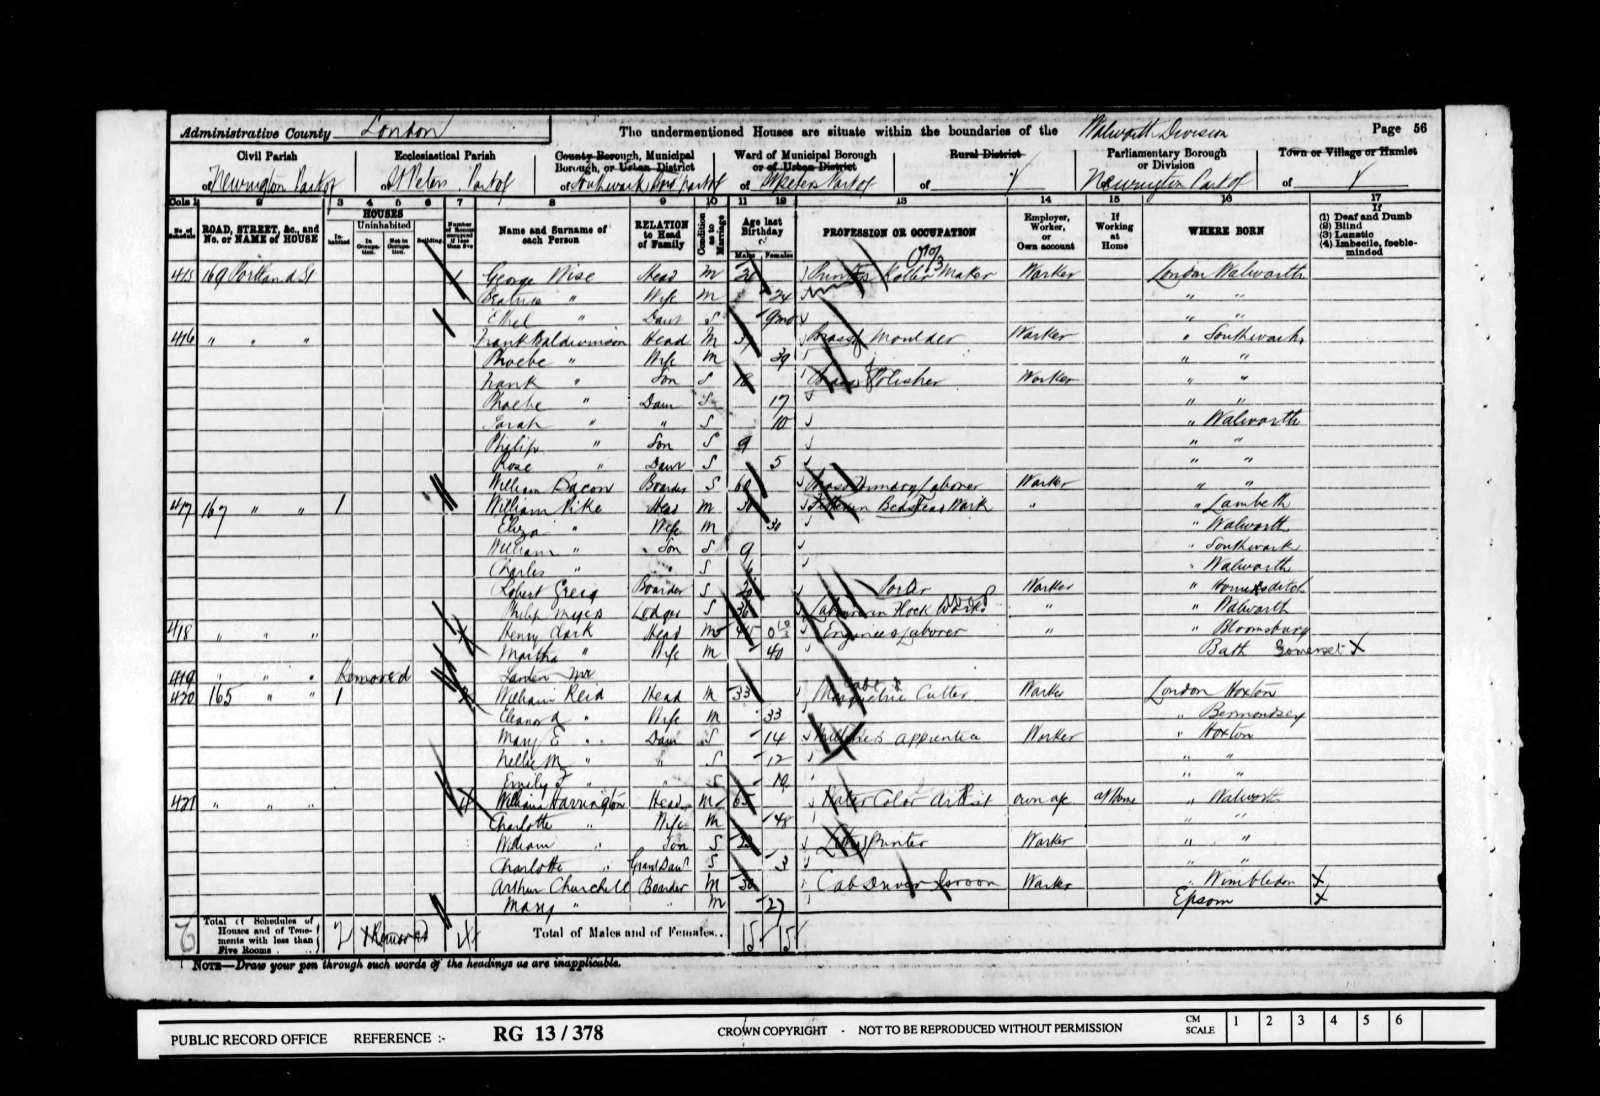 Administrative County London The undermentioned Houses are situate within the boundaries of the Walworth Division Page 56
Civil Parish Ecclesiastical Parish County Borough, Municipal Borough, or Urban District Ward of Municipal Borough or of Urban District Rural District Parliamentary Borough or Division Town or Village or Hamlet
of Newington Part of of St Peters Part of of Southwark Boro part of of St Peters Part of of Newington Part of of
Cols 1 2 3 4 5 6 7 8 9 10 11 12 13 14 15 16 17
No. of Schedule ROAD, STREET, &c., and No. or NAME of HOUSE HOUSES Inhabited Uninhabited In Occupation. Not in Occupation. Building. Number of Rooms occupied if less than five Name and Surname of each Person RELATION to Head of Family Condition as to Marriage Age last Birthday Males Females PROFESSION OR OCCUPATION Employer, Worker, or Own account If Working at Home WHERE BORN If (1) Deaf and Dumb (2) Blind (3) Lunatic (4) Imbecile, feeble-minded
415 169 Portland St George Wise Head M Printers Roller Maker Worker London Walworth
Beatrice " Wife M 24 " "
Ethel " Daur S 9mo " "
416 " " " Frank Baldwinson Head M Brass Moulder Worker " Southwark
Phoebe " Wife M 39 " "
Frank " Son S 18 Brass Polisher Worker " "
Phoebe " Daur S 17 " "
Sarah " " S 10 " Walworth
Philip " Son S 9 " "
Rose " Daur S 5 " "
William Bacon Boarder S 60 Laborer Worker " "
417 167 " " 1 William Pike Head M 30 Bedstead Work " " Lambeth
Eliza " Wife M 30 " Walworth
William " Son S 9 " Southwark
Charles " " S 6 " Walworth
Robert Greig Boarder S Porter Worker "
Philip Myers Lodger S 36 Work " " Walworth
418 " " " Henry Clark Head M 45 Engineers Laborer " " Bloomsbury
Martha " Wife M 40 Bath Somerset X
419 " " " Removed
420 165 " " 1 William Reid Head M 33 Cutter Worker London Hoxton
Eleanor " Wife M 33 " Bermondsey
Mary E " Daur S 14 Milliners apprentice Worker " Hoxton
Nellie M " " S 12 " "
Emily F " " S 10 " "
421 " " " 4 William Harrington Head M 65 Water Color Artist own a/c at Home " Walworth
Charlotte " Wife M 48 " "
William " Son S Printer Worker " "
Charlotte " Grand Daur S 3 " "
Arthur Churchill Boarder M 30 Cab Driver Groom Worker " Wimbledon X
Mary " " M 27 Epsom X
Total of Schedules of Houses and of Tenements with less than Five Rooms 2 1 Removed 4 Total of Males and of Females.. 15 15
NOTE—Draw your pen through such words of the headings as are inapplicable.
PUBLIC RECORD OFFICE REFERENCE :- RG 13 / 378 CROWN COPYRIGHT - NOT TO BE REPRODUCED WITHOUT PERMISSION CM SCALE 1 2 3 4 5 6